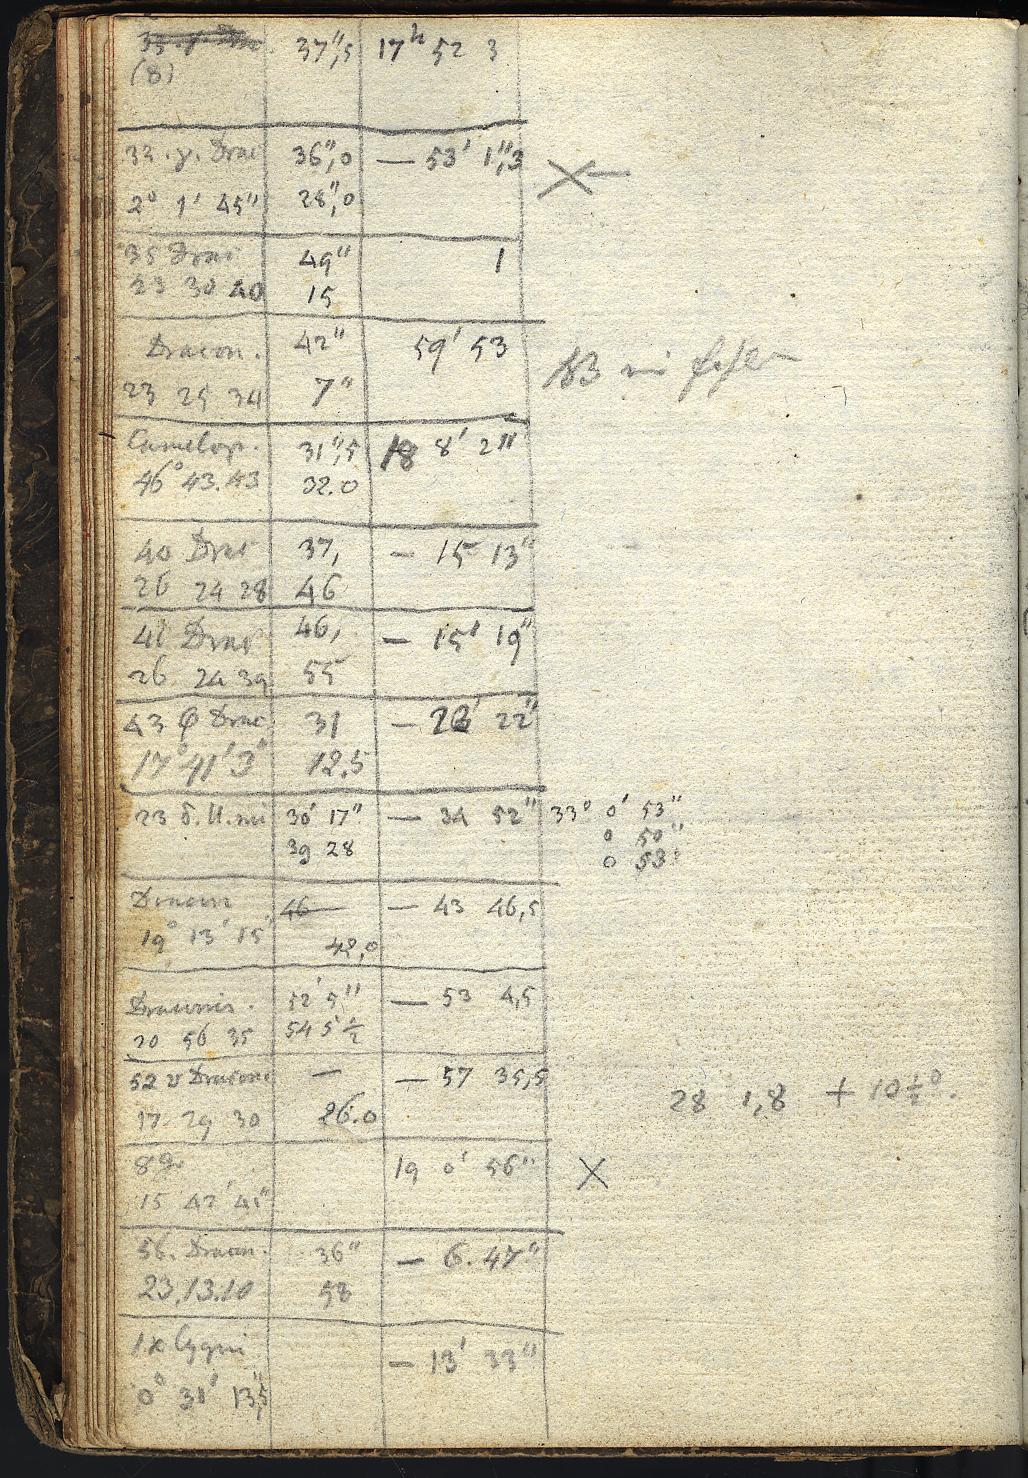 37",5 17h 52 3
(8)
33. γ. Drac 36",0 — 53' 1",3
2° 1' 45" 28",0
35 Drac 49" 1
23 30 40 15
Dracon. 42" 59' 53
23 25 34 7"
Camelop. 31",5 18 8' 2"
46° 43. 43 32.0
40 Drac 37, — 15 13"
26 24 28 46
41 Drac 46, — 15' 19"
26 24 39 55
43 φ Drac 31 — 22"
17° 41' 3" 12.5
23 δ. U. mi 30' 17" — 34 52" 33° 0' 53"
39 28 0 50"
0 53"
46 — 43 46,5
19° 13' 15" 42,0
Draconis. 52' 5" — 53 4,5
20 56 35 54 5 1/2
52 υ Draconi — — 57 35,5
28 1,8 + 10 1/2°.
17. 29 30 26.0
19 0' 56" X
15 42' 41"
56. Dracon. 36" — 6. 47"
23.13.10 58
1 κ Cygni — 13' 33"
0° 31' 13",5